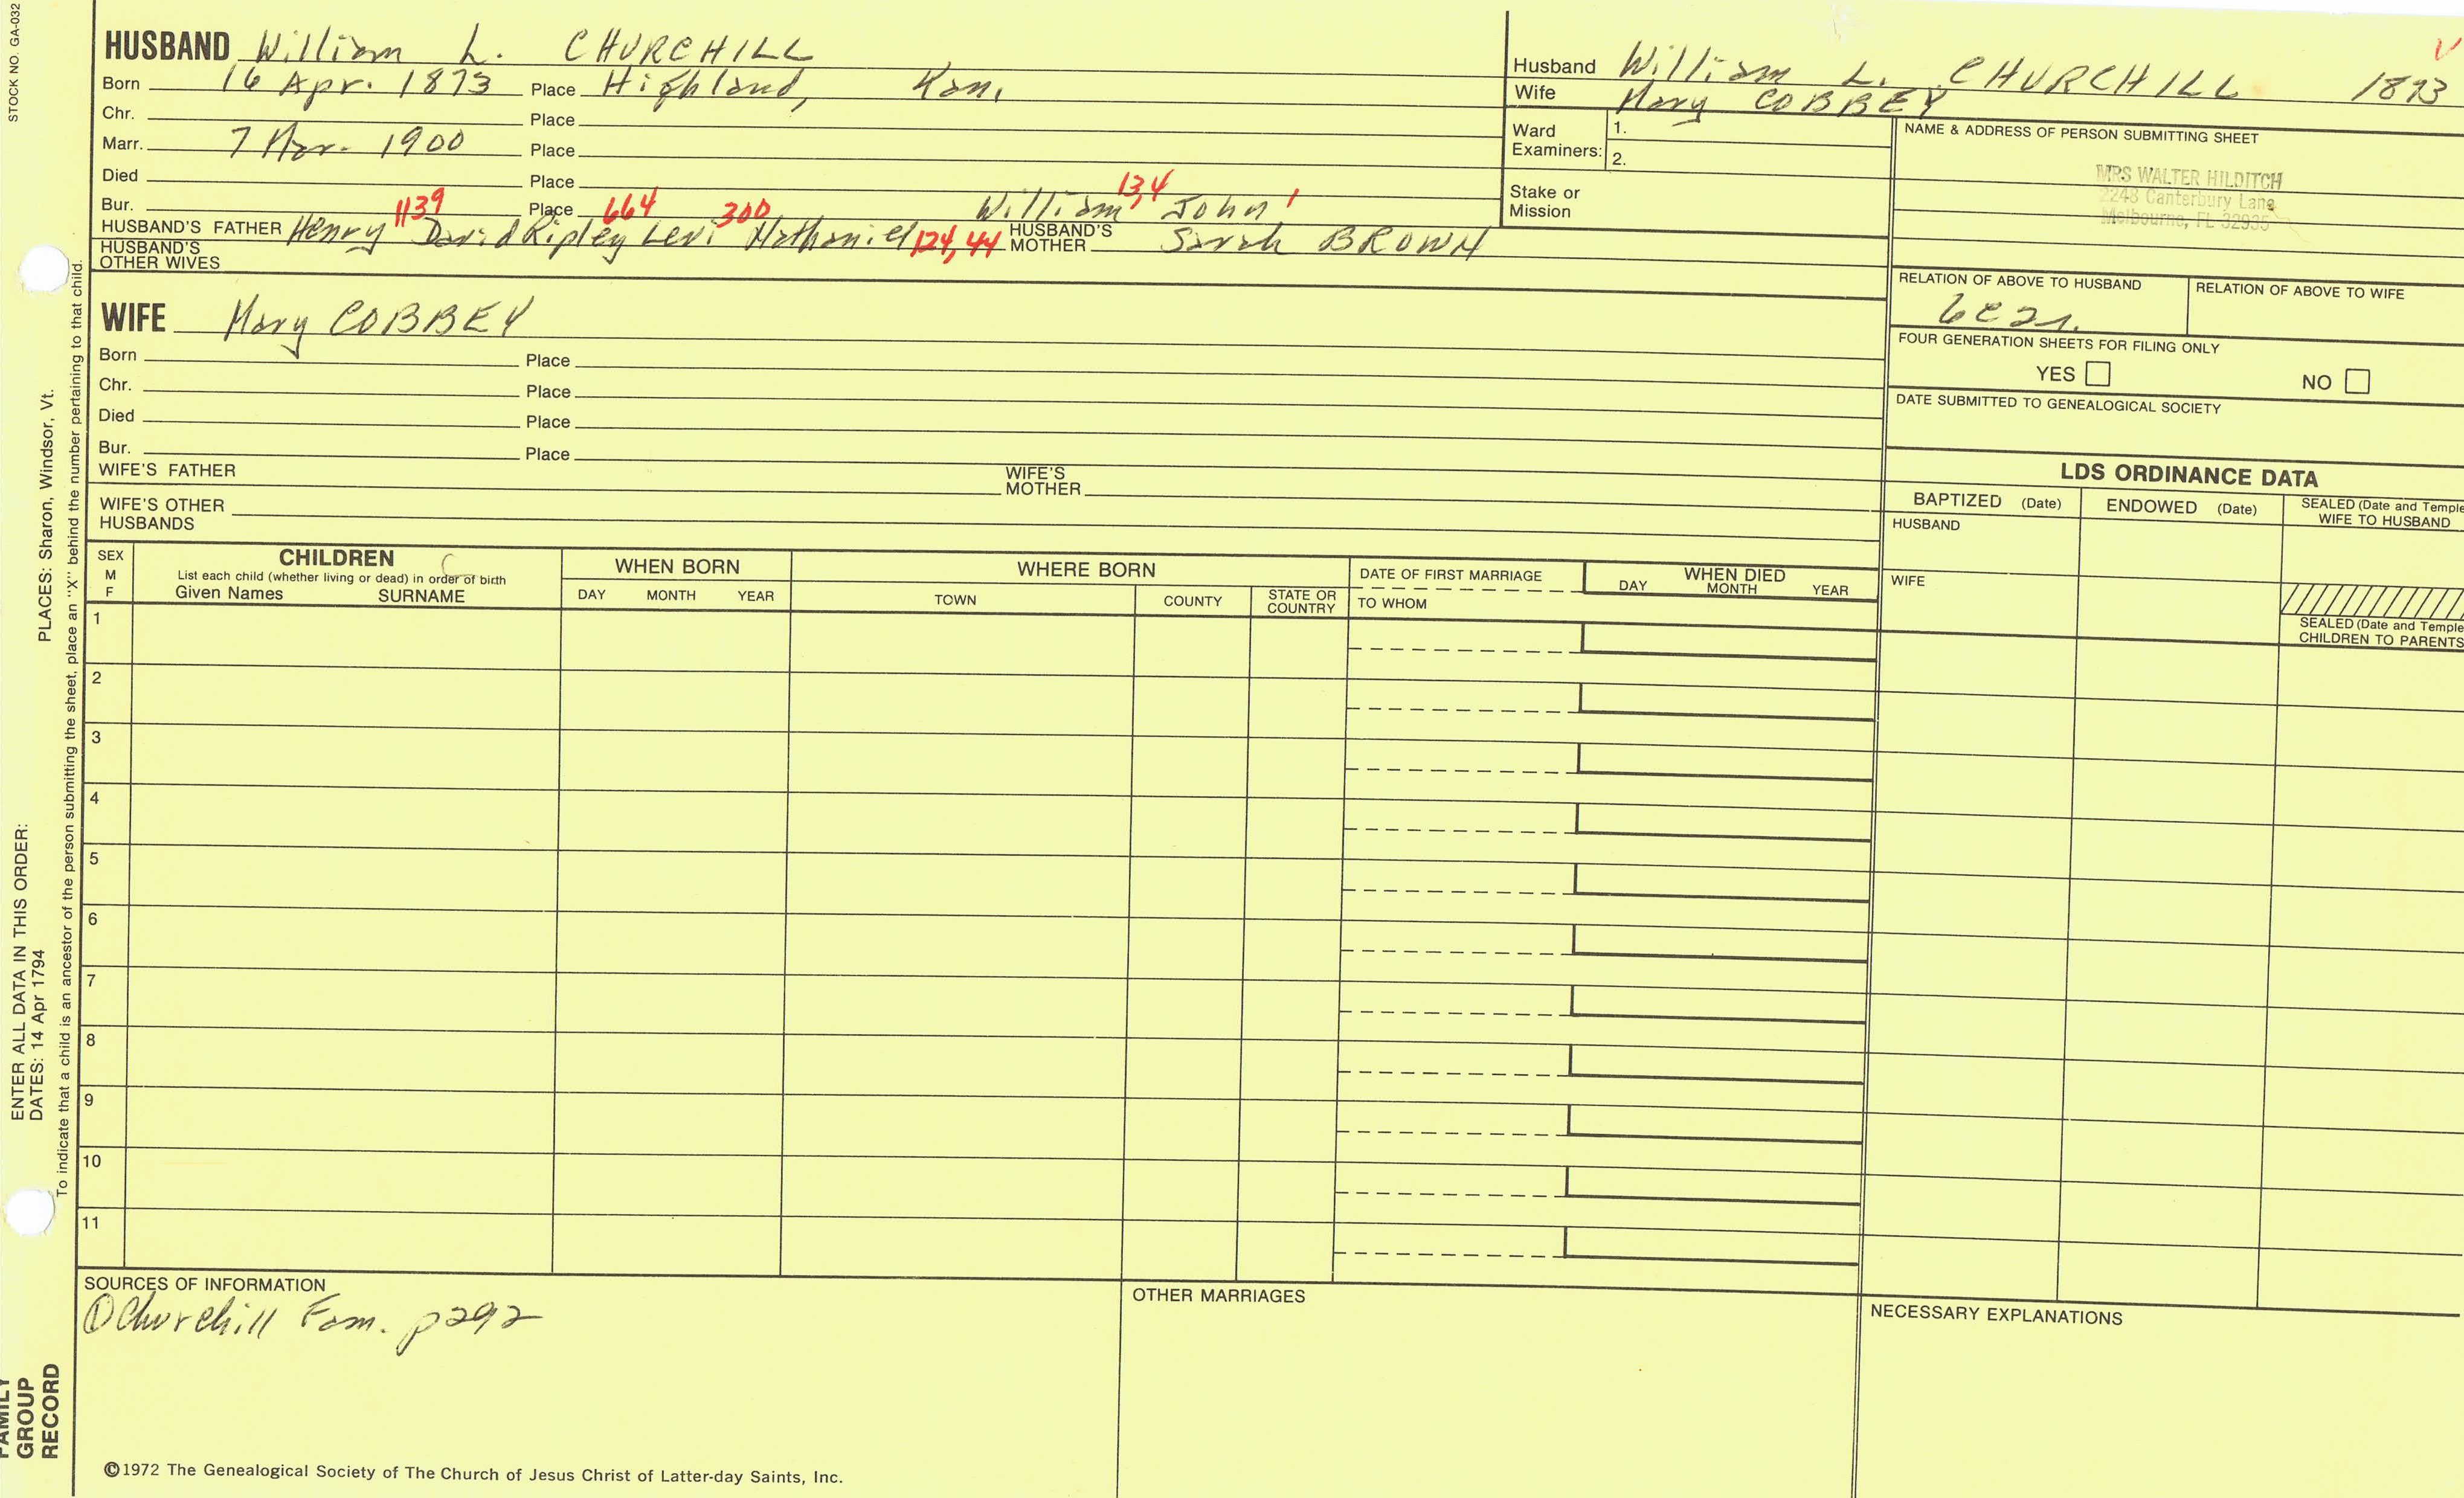 STOCK NO. GA-032
HUSBAND William L. CHURCHILL
Born 16 Apr. 1873 Place Highland, Kan.
Chr. Place
Marr. 7 Mar. 1900 Place
Died Place
Bur. Place
1139 664 300 William 13,4 John 1
HUSBAND'S FATHER Henry David Ripley Levi Nathaniel 124, 44 HUSBAND'S MOTHER Sarah BROWN
HUSBAND'S OTHER WIVES
WIFE Mary COBBEY
Born Place
Chr. Place
Died Place
Bur. Place
WIFE'S FATHER WIFE'S MOTHER
WIFE'S OTHER HUSBANDS
Husband William L. CHURCHILL 1873
Wife Mary COBBEY
Ward Examiners: 1.
2.
Stake or Mission
NAME & ADDRESS OF PERSON SUBMITTING SHEET
MRS WALTER HILDITCH
2248 Canterbury Lane
Melbourne, FL 32935
RELATION OF ABOVE TO HUSBAND RELATION OF ABOVE TO WIFE
6C2r.
FOUR GENERATION SHEETS FOR FILING ONLY
YES NO
DATE SUBMITTED TO GENEALOGICAL SOCIETY
LDS ORDINANCE DATA
BAPTIZED (Date) ENDOWED (Date) SEALED (Date and Temple
WIFE TO HUSBAND
HUSBAND
WIFE
SEALED (Date and Temple
CHILDREN TO PARENTS
SEX M F
CHILDREN
List each child (whether living or dead) in order of birth
Given Names SURNAME
WHEN BORN
DAY MONTH YEAR
WHERE BORN
TOWN COUNTY STATE OR COUNTRY
DATE OF FIRST MARRIAGE
TO WHOM
WHEN DIED
DAY MONTH YEAR
1
2
3
4
5
6
7
8
9
10
11
SOURCES OF INFORMATION
① Churchill Fam. p292
OTHER MARRIAGES
NECESSARY EXPLANATIONS
©1972 The Genealogical Society of The Church of Jesus Christ of Latter-day Saints, Inc.
ENTER ALL DATA IN THIS ORDER:
DATES: 14 Apr 1794 PLACES: Sharon, Windsor, Vt.
To indicate that a child is an ancestor of the person submitting the sheet, place an "X" behind the number pertaining to that child.
FAMILY
GROUP
RECORD